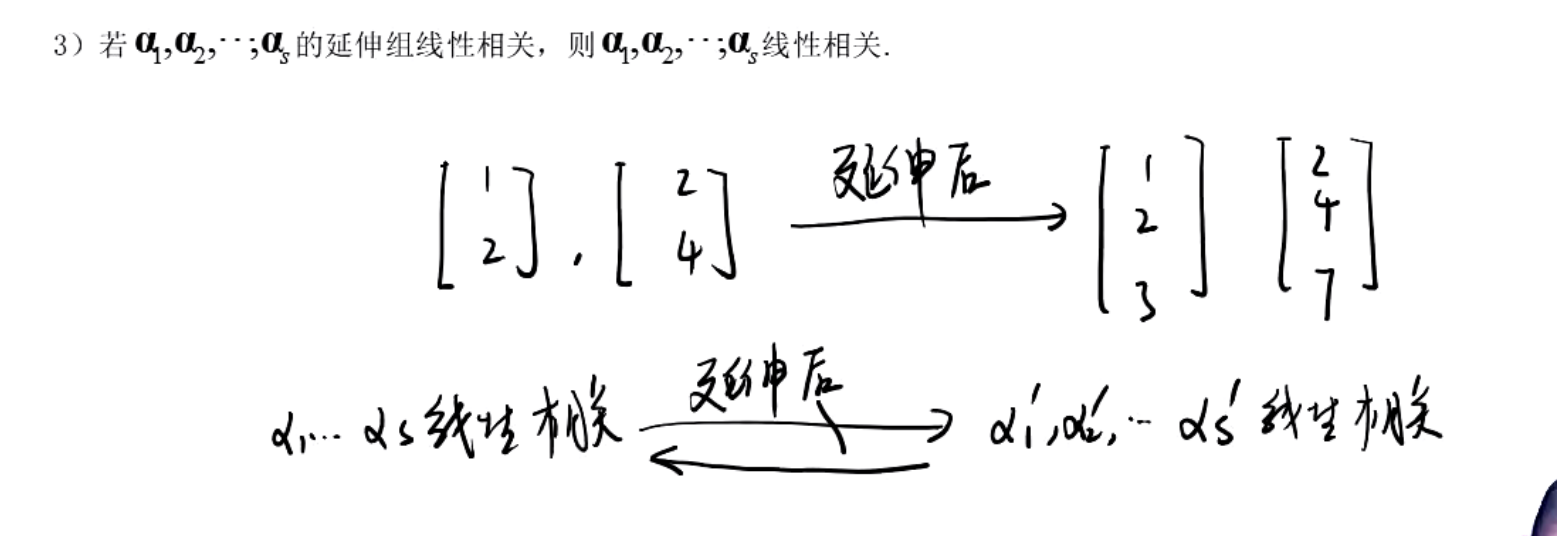 3）若 α₁,α₂,⋯,αₛ 的延伸组线性相关，则 α₁,α₂,⋯,αₛ 线性相关.
[1 2], [2 4] 延伸后 → [1 2 3] [2 4 7]
延伸后
α₁,⋯ αs 线性相关 ⇸ ← α₁′,α₂′,⋯ αs′ 线性相关